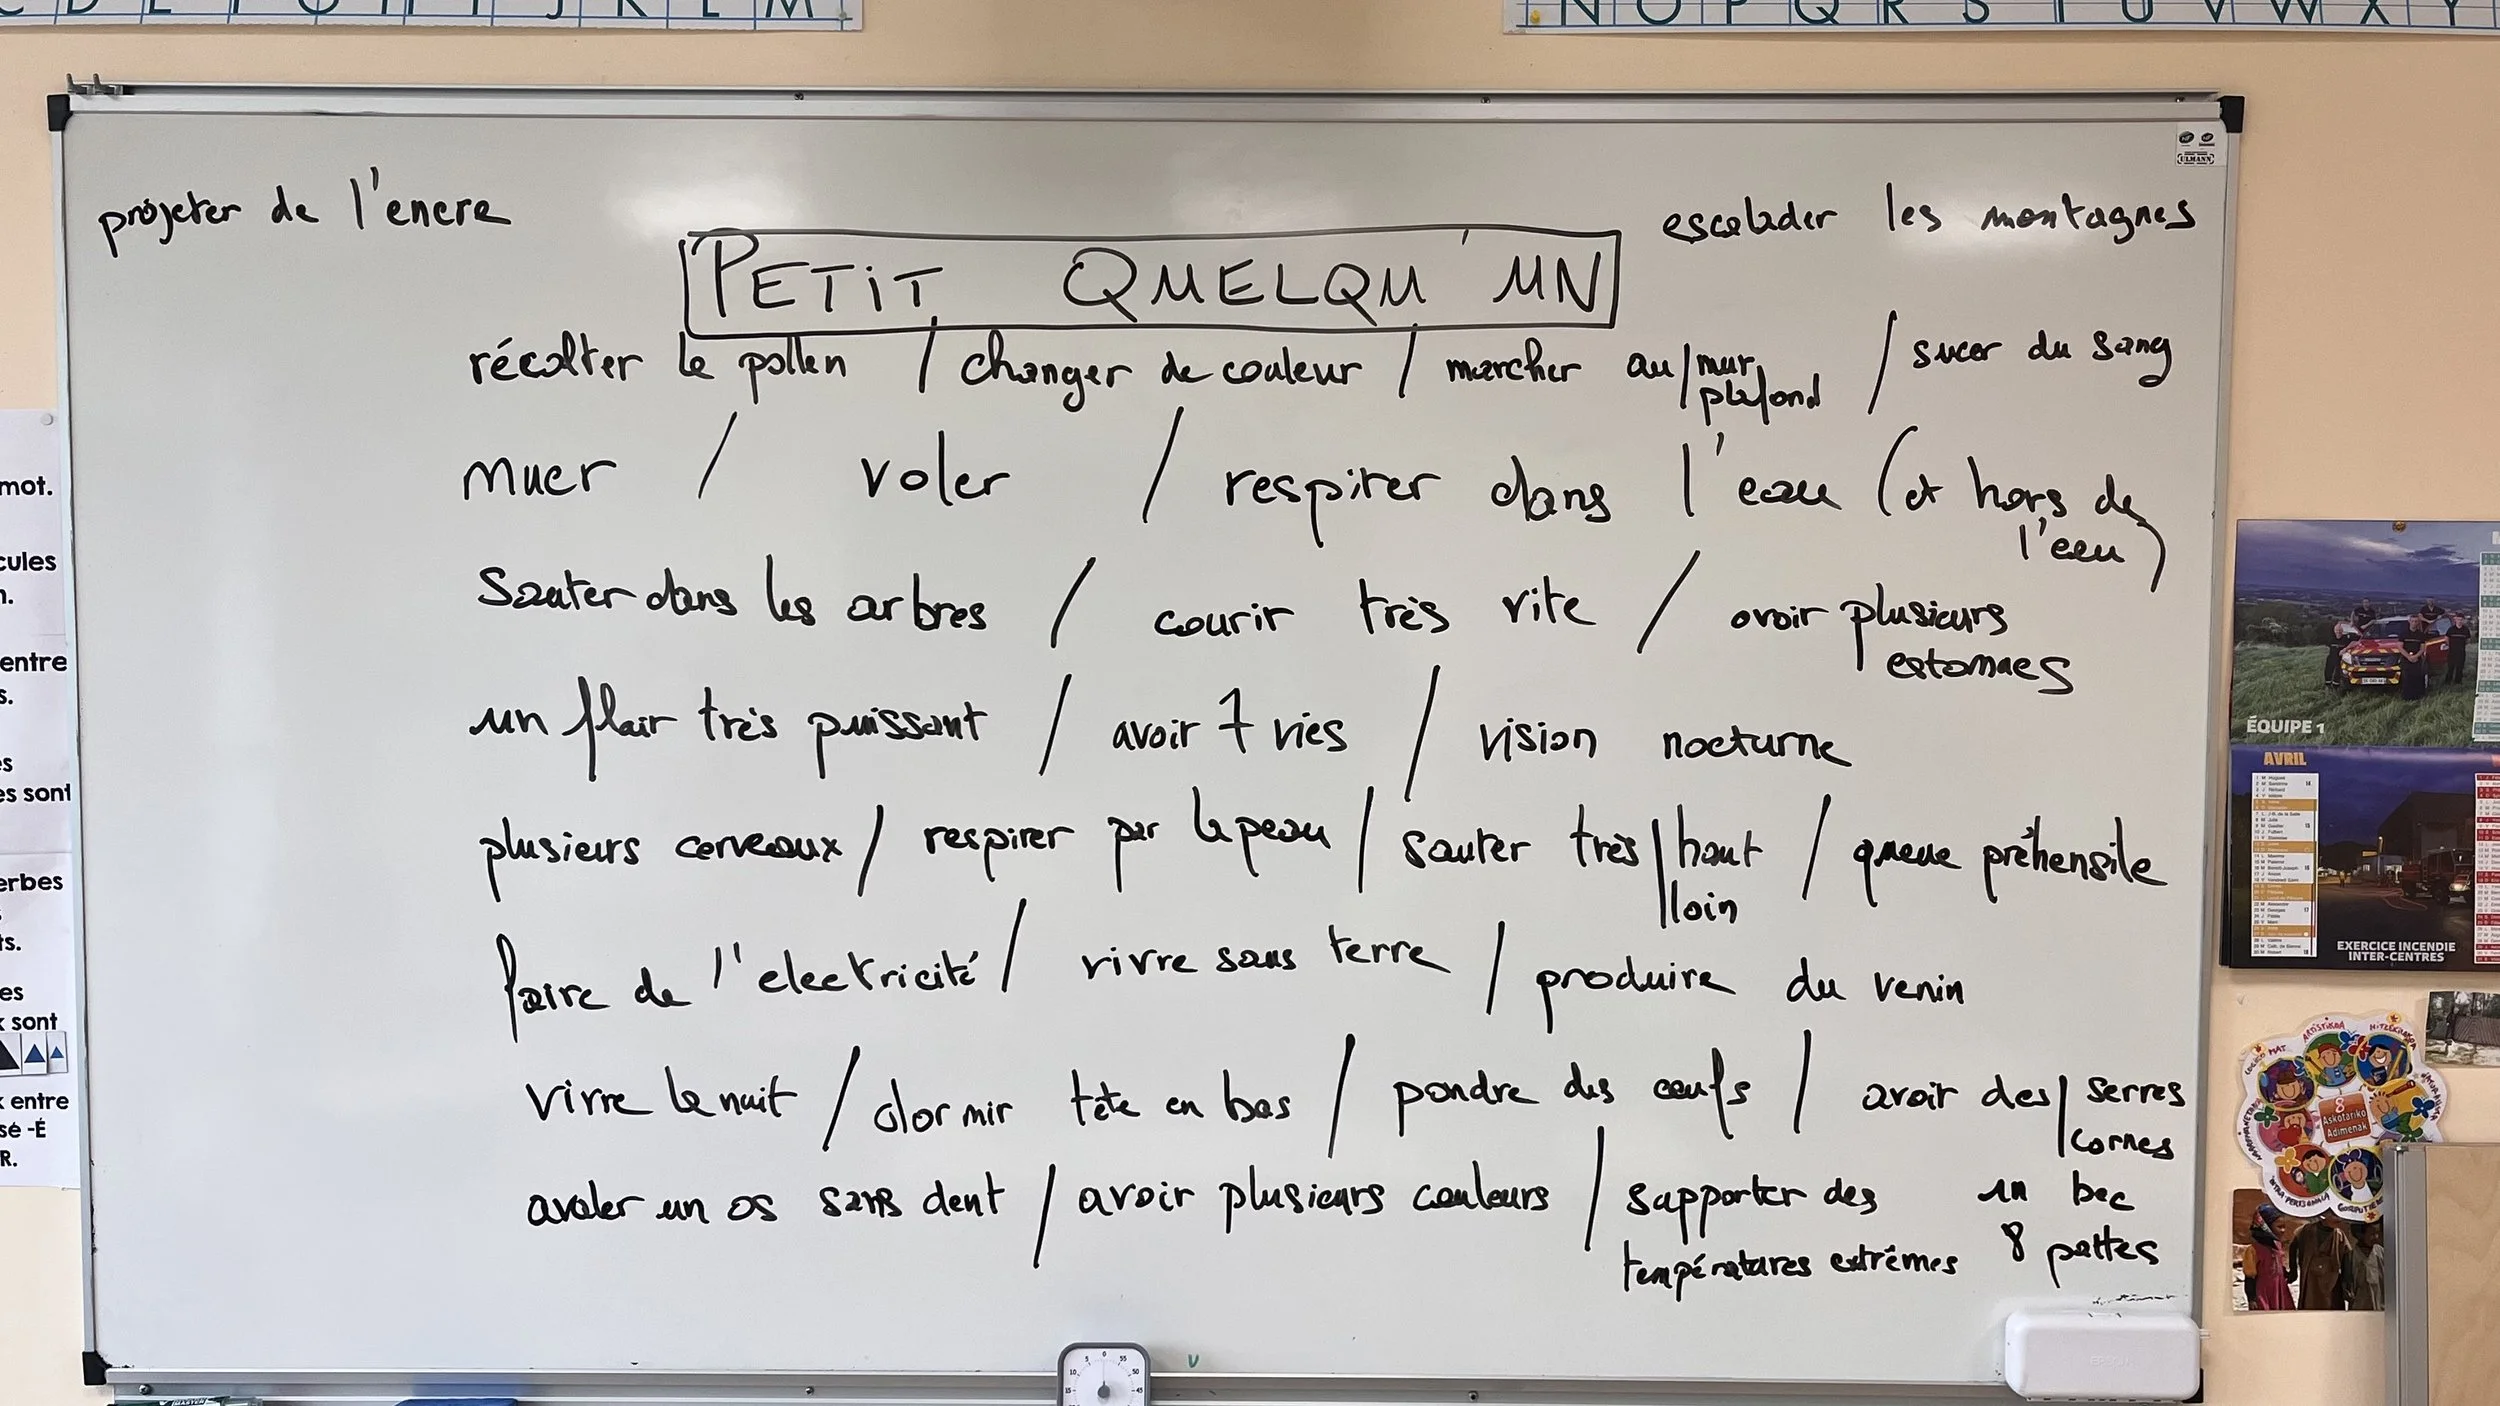 C D E F G H I J K L M
N O P Q R S T U V W X Y
ULMANN
projeter de l'encre
escalader les montagnes
PETIT QUELQU'UN
récolter le pollen / changer de couleur / marcher au | mur / sucer du sang
plafond
muer / voler / respirer dans l'eau (et hors de
l'eau)
Sauter dans les arbres / courir très vite / avoir plusieurs
estomacs
un flair très puissant / avoir 7 vies / vision nocturne
plusieurs cerveaux / respirer par la peau / sauter très | haut / queue préhensile
loin
faire de l'electricité / vivre sans terre / produire du venin
vivre la nuit / dormir tête en bas / pondre des œufs / avoir des | serres
cornes
avaler un os sans dent / avoir plusieurs couleurs / supporter des
températures extrêmes
un bec
8 pattes
mot.
cules
entre
s.
es sont
erbes
ts.
es
x sont
x entre
sé -É
R.
ÉQUIPE 1
AVRIL
EXERCICE INCENDIE
INTER-CENTRES
8
Askotariko
Adimenak
0
5 55
10 50
15 45